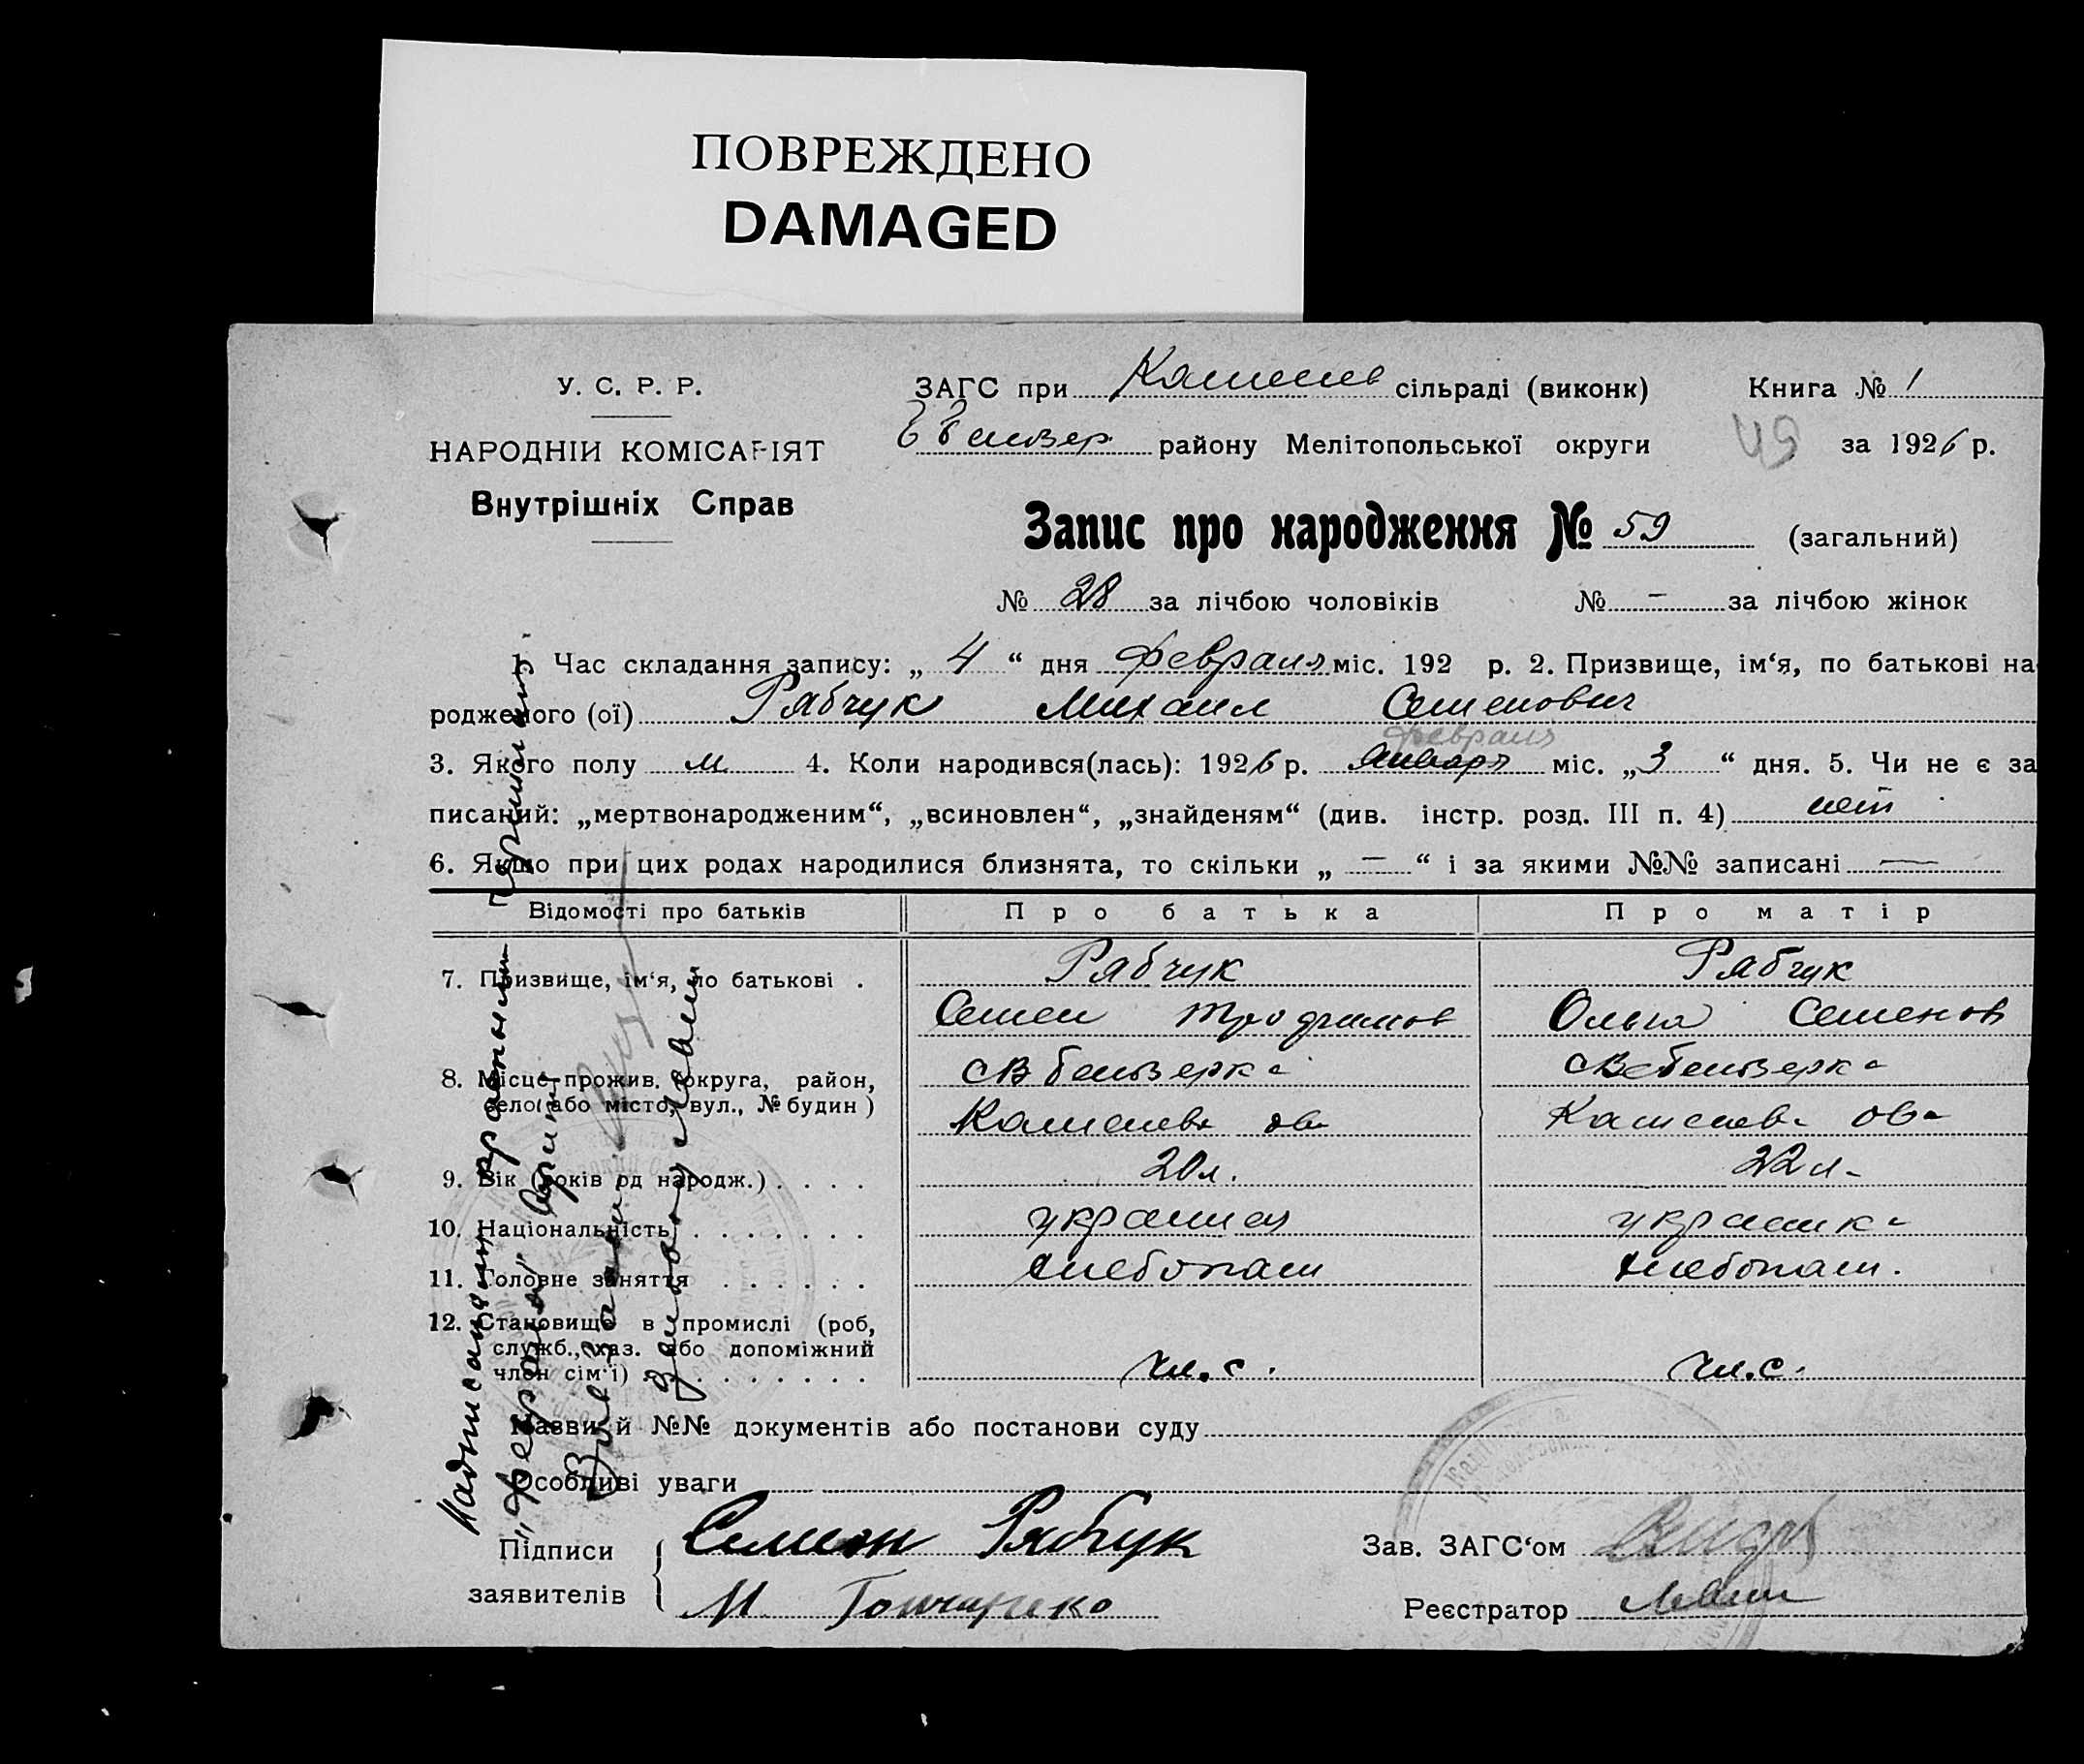 ПОВРЕЖДЕНО
DAMAGED
У. С. Р. Р.
НАРОДНІЙ КОМІСАРІЯТ
Внутрішніх Справ
ЗАГС при Каменев сільраді (виконк)
району Мелітопольської округи
Книга № 1
49 за 1926 р.
Запис про народження № 59 (загальний)
№ 28 за лічбою чоловіків № — за лічбою жінок
1. Час складання запису: „ 4 “ дня февраля міс. 192 р. 2. Призвище, ім‘я, по батькові на
родженого (ої) Рябчук Михаил Семенович
февраля
3. Якого полу м. 4. Коли народився(лась): 1926 р. январь міс. „3 “ дня. 5. Чи не є за
писаний: „мертвонародженим“, „всиновлен“, „знайденям“ (див. інстр. розд. III п. 4) нет
6. Якщо при цих родах народилися близнята, то скільки „ — “ і за якими №№ записані —
Відомості про батьків Про батька Про матір
7. Призвище, ім‘я, по батькові . Рябчук Рябчук
Семен Ольга Семенов
8. Місце прожив. (округа, район,
село або місто, вул., № будин)
9. Вік (років од народж.) . . . . 20 л. 22 л.
10. Національність . . . . . . . украинец украинка
11. Головне заняття . . . . . . хлебопаш хлебопаш.
12. Становище в промислі (роб,
служб., хаз. або допоміжний
член сім‘ї) . . . . . . . . чл.с. чл.с.
Назви й №№ документів або постанови суду
Особливі уваги
Підписи
заявителів
Семен Рябчук
М
Зав. ЗАГС‘ом
Реєстратор
Надписанному красными чернилами
„февраля“ верить
Зав